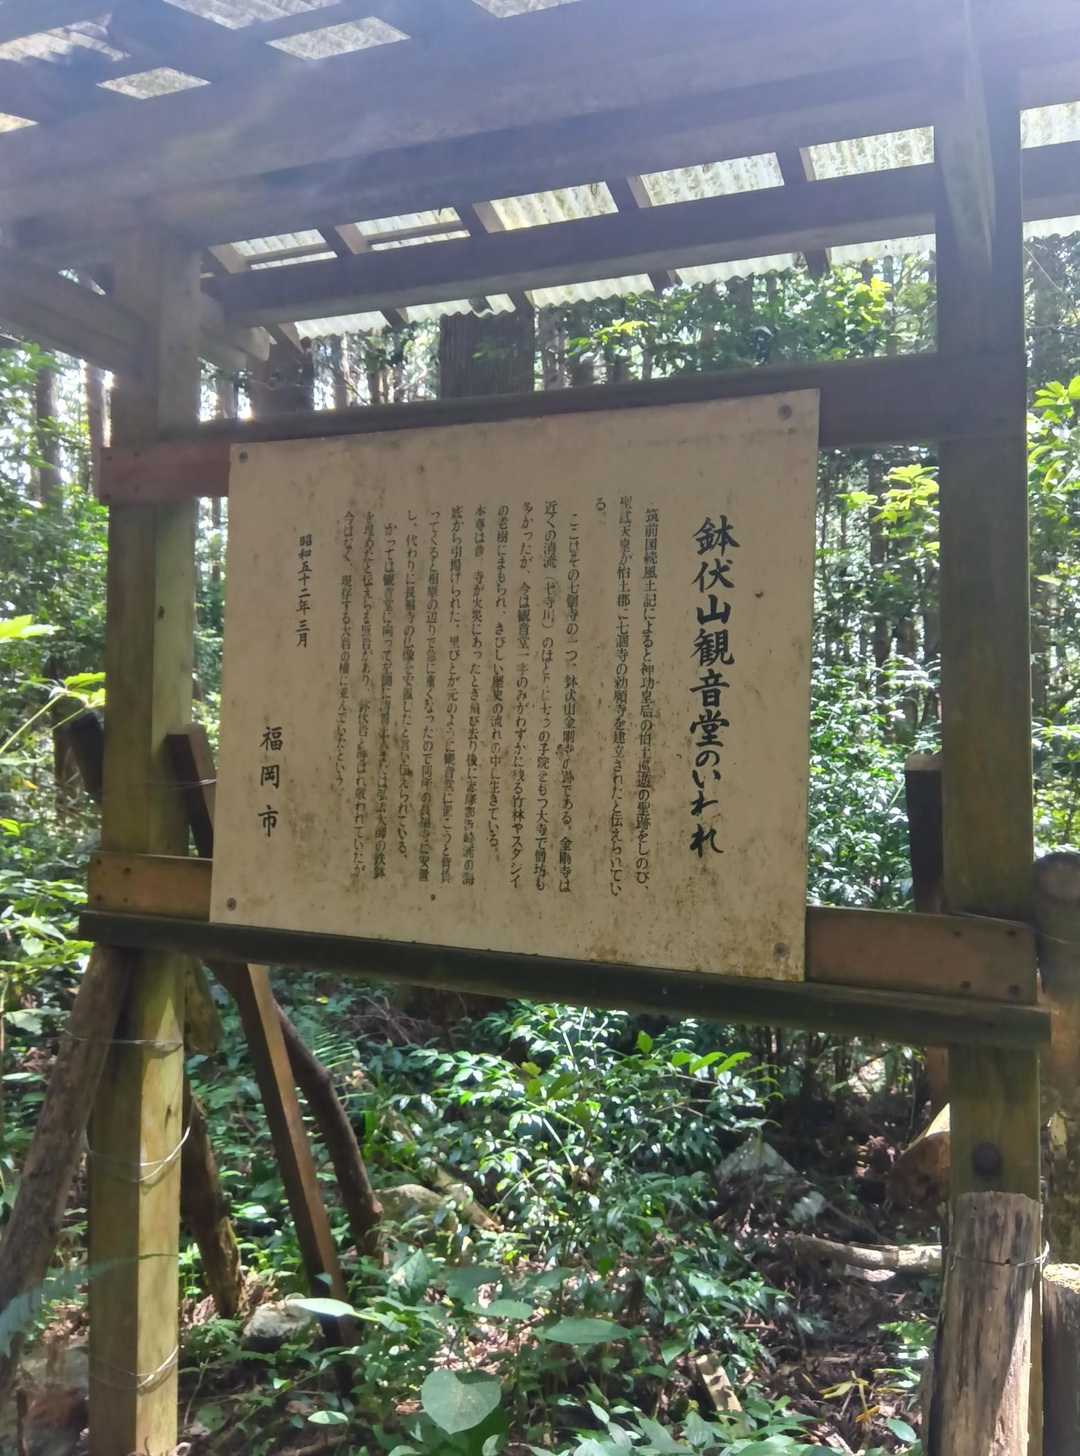 鉢伏山観音堂のいわれ
筑前国続風土記によると神功皇后の怡土直遊の聖蹟をしのび、
聖武天皇が怡土郡に七ヶ寺の勅願寺を建立されたと伝えられてい
る。
ここはその七ヶ寺の一つ、鉢伏山金剛寺の跡である。金剛寺は
近くの清流(七寺川)のほとりに七つの子院をもつ大寺で僧坊も
多かったが、今は観音堂一宇のみがわずかに残る竹林やスダジイ
の老樹にまもられ、さびしい歴史の流れの中に生きている。
本尊は昔、寺が火災にあったとき飛び去り後に志摩郡寺
底から引揚げられた。里びとが元のように観音堂に
ってくると相原の辺りで急に重くなったので同所の長福寺に安置
し、代わりに長福寺の仏像を
かつては観音堂に向って
今はなく、現存する大岩の横に並んでいたという。
昭和五十二年三月
福岡市